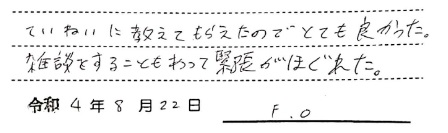 ていねいに教えてもらえたのでとても良かった。
雑談をすることもあって緊張がほぐれた。
令和 4 年 8 月 22 日 F.O